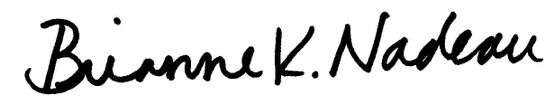 Brianne K. Nadeau